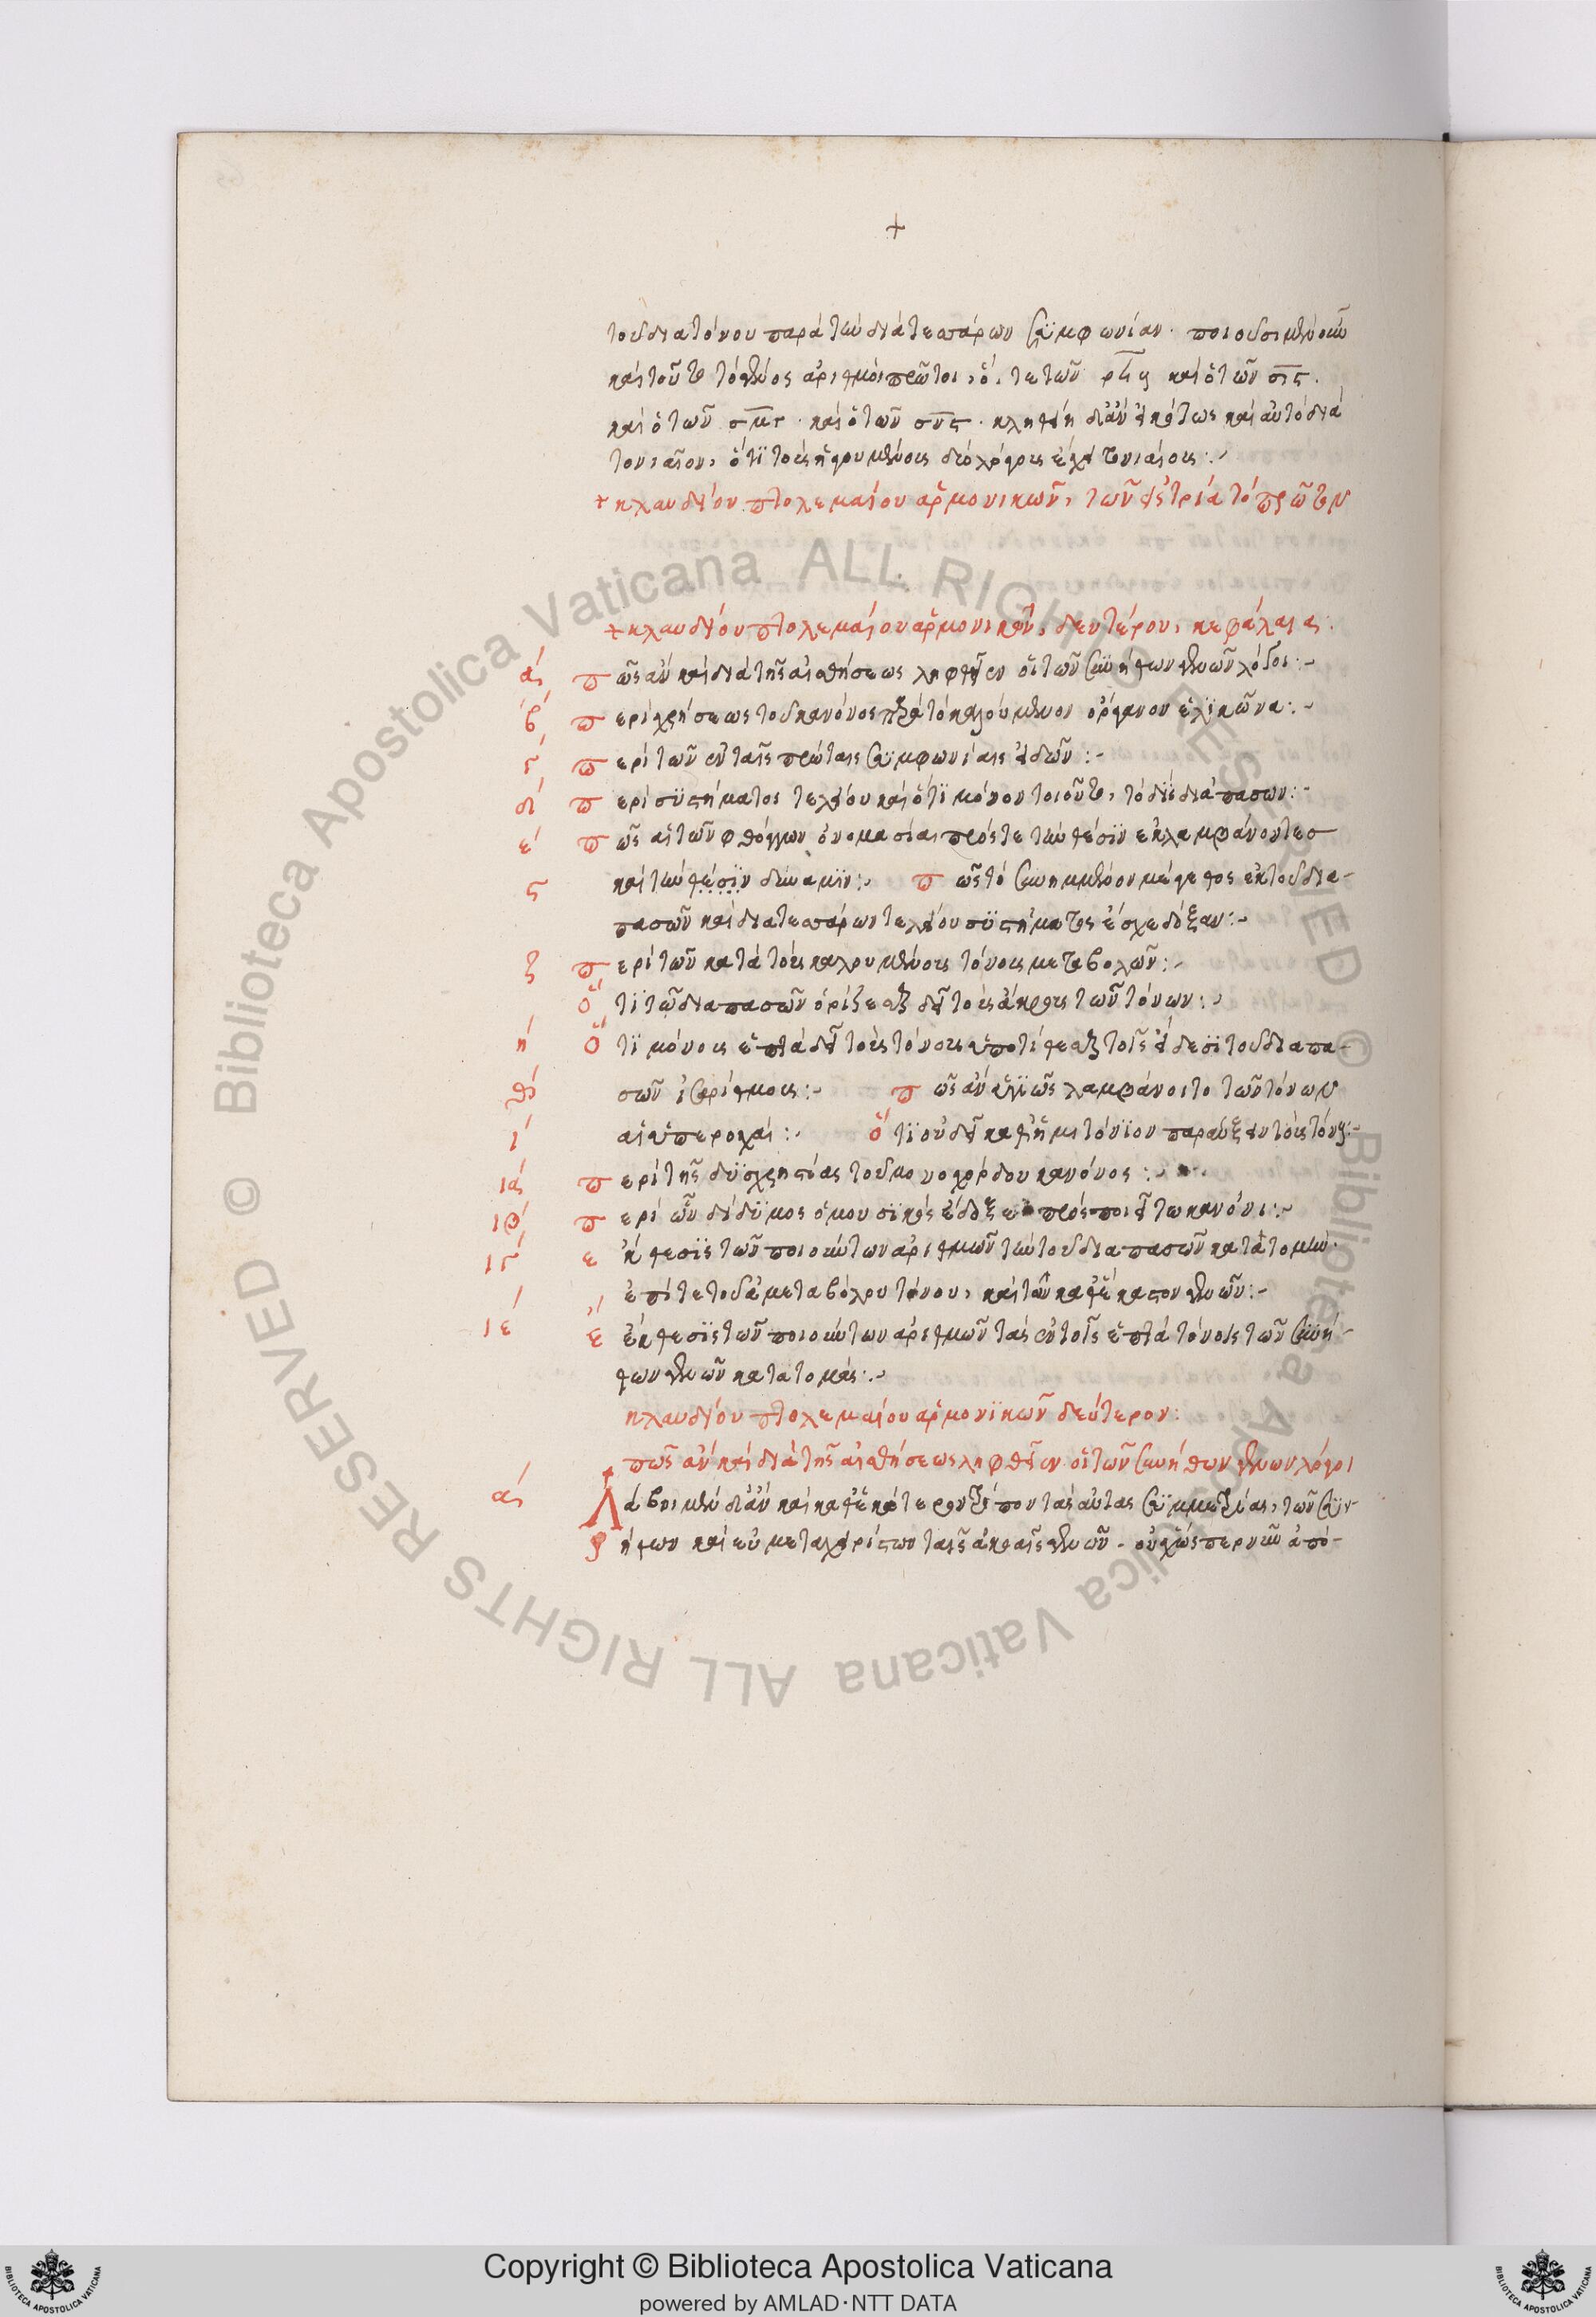 +
τοῦ διατόνου παρὰ τὴν διὰ τεσσάρων συμφωνίαν. ποιοῦσι μὲν οὖν
καὶ τοῦτο τὸ γένος ἀριθμοὶ πρῶτοι, ὅ, τε τῶν ρ̅ϟ̅β̅ καὶ ὁ τῶν σ̅ι̅ϛ̅.
καὶ ὁ τῶν σ̅μ̅γ̅. καὶ ὁ τῶν σ̅ν̅ϛ̅. κληθείη δ' ἂν εἰκότως καὶ αὐτὸ διὰ
τονιαῖον, ὅτι τοὺς ἡγουμένους δύο λόγους ἔχει τονιαίους :~
+ κλαυδίου πτολεμαίου ἁρμονικῶν, τῶν εἰς τρία τὸ πρῶτον
+ κλαυδίου πτολεμαίου ἁρμονικῶν, δευτέρου, κεφάλαια:
α´ πῶς ἂν καὶ διὰ τῆς αἰσθήσεως ληφθεῖεν οἱ τῶν συνήθων γενῶν λόγοι :~
β´ περὶ χρήσεως τοῦ κανόνος παρὰ τὸ καλούμενον ὄργανον ἑλικῶνα :~
γ´ περὶ τῶν ἐν ταῖς πρώταις συμφωνίαις εἰδῶν :~
δ´ περὶ συστήματος τελείου καὶ ὅτι μόνον τοιοῦτο, τὸ δὶς διὰ πασων :~
ε´ πῶς αἱ τῶν φθόγγων ὀνομασίαι πρός τε τὴν θέσιν ἐκλαμβάνοντες
ϛ καὶ τὴν θέσιν δύναμιν :~ πῶς τὸ συνημμένον μέγεθος ἐκ τοῦ δια-
πασῶν καὶ διατεσσάρων τελείου συστήματος ἔσχε δόξαν :~
ζ περὶ τῶν κατὰ τοὺς καλουμένους τόνους μεταβολῶν :~
ὅτι τῷ διαπασῶν ὁρίζεσθαι δεῖ τοὺς ἄκρους τῶν τόνων :~
η´ ὅτι μόνους ἑπτὰ δεῖ τοὺς τόνους ὑποτίθεσθαι τοῖς εἴδεσι τοῦ διαπα-
θ´ σῶν ἰσαρίθμους :~ πῶς ἂν ὑγιῶς λαμβάνοιτο τῶν τόνων
ι´ αἱ ὑπεροχαί :~ ὅτι οὐ δεῖ καθ' ἡμιτόνιον παραύξειν τοὺς τόνους :~
ια´ περὶ τῆς δυσχρηστίας τοῦ μονοχόρδου κανόνος :~
ιβ´ περὶ ὧν δίδυμος ὁ μουσικὸς ἔδοξε προσποιεῖ τω κανόνι :~
ιγ´ ἔκθεσις τῶν ποιούντων ἀριθμῶν τὴν τοῦ διαπασῶν κατατομὴν
ι´ ἐπί τε τοῦ ἀμεταβόλου τόνου, καὶ τῶν καθ' ἕκαστον γενῶν :~
ιε´ ε ἔκθεσις τῶν ποιούντων ἀριθμῶν τὰς ἐν τοῖς ἑπτὰ τόνοις τῶν συνή-
θων γενῶν κατατομάς :~
κλαυδίου πτολεμαίου ἁρμονικῶν δεύτερον:
πῶς ἂν καὶ διὰ τῆς αἰσθήσεως ληφθεῖεν οἱ τῶν συνήθων γενων λόγοι
α´ Λάβοι μὲν δ' ἂν καὶ καθ' ἑκάτερον τρόπον τὰς αὐτὰς συμμετρίας, τῶν συν-
ήθων καὶ εὐμεταχειρίστων ταῖς ἀκοαῖς γενῶν. οὐχ ὥσπερ νῦν ἀπό-
Copyright © Biblioteca Apostolica Vaticana
powered by AMLAD·NTT DATA